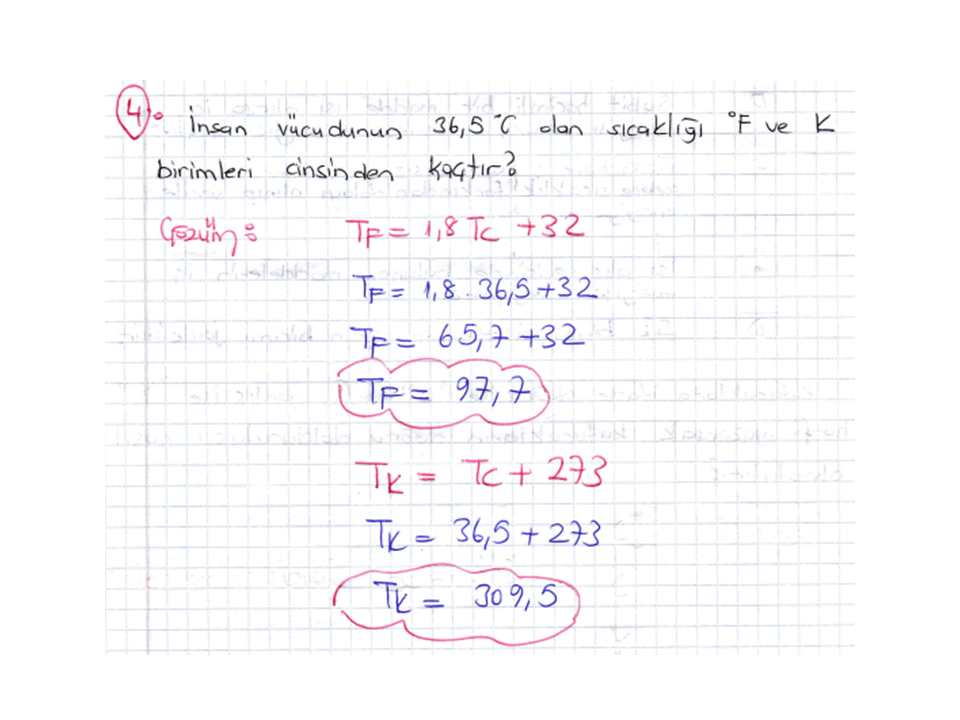 4. İnsan vücudunun 36,5 °C olan sıcaklığı °F ve K
birimleri cinsinden kaçtır?
Çözüm:
TF = 1,8 TC + 32
TF = 1,8 . 36,5 + 32
TF = 65,7 + 32
TF = 97,7
TK = TC + 273
TK = 36,5 + 273
TK = 309,5